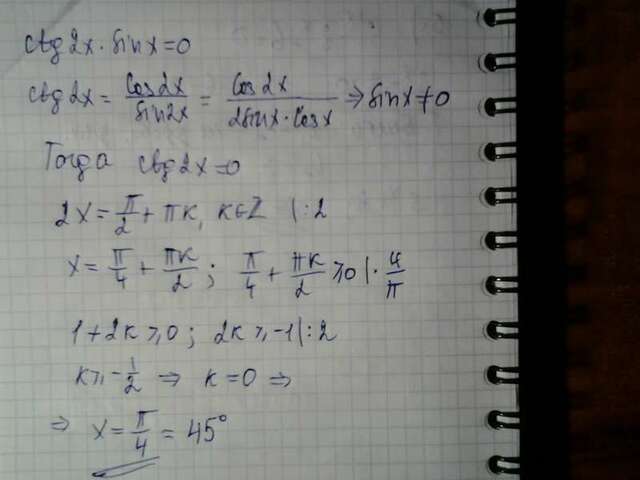 ctg2x·sinx=0
ctg2x = cos2x/sin2x = cos2x/2sinx·cosx ⇒ sinx≠0
Тогда ctg2x=0
2x = π/2 + πk, k∈Z |:2
x = π/4 + πk/2; π/4 + πk/2 ⩾0 |· 4/π
1+2k⩾0; 2k⩾-1|:2
k⩾-1/2 ⇒ k=0 ⇒
⇒ x = π/4 = 45°